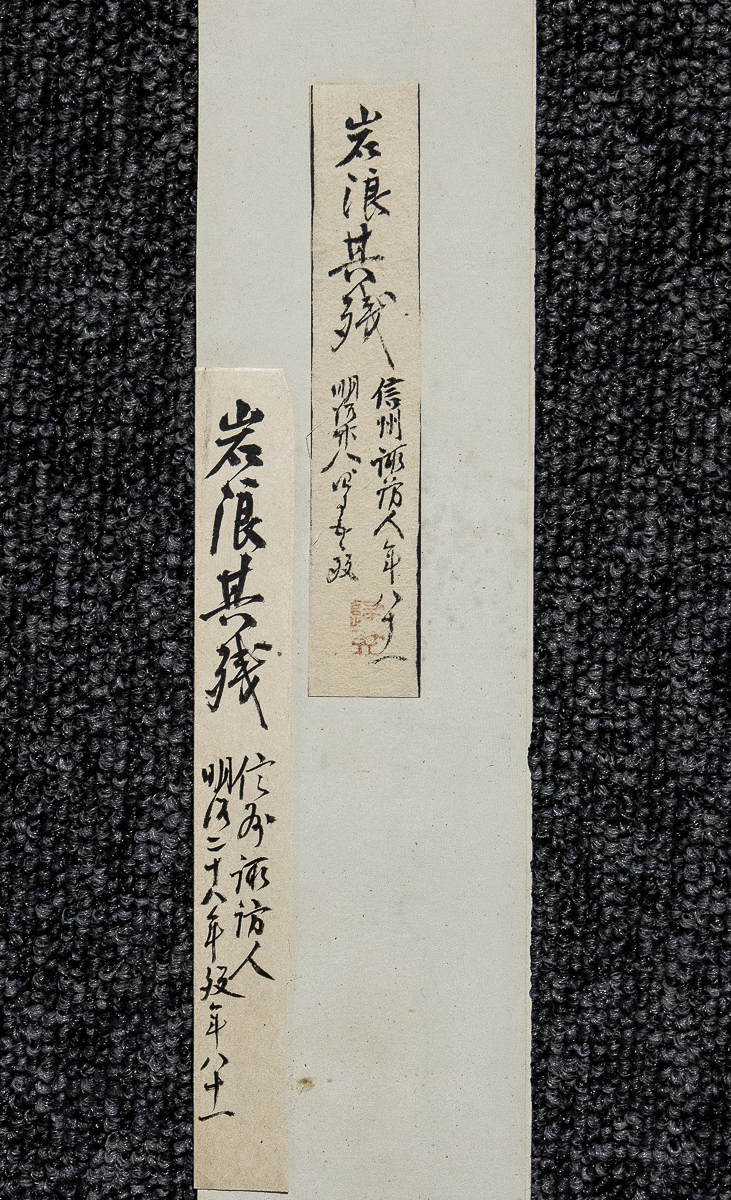 岩浪其残
信州諏訪人年八十一
明治
岩浪其残
信州諏訪人
明治二十八年歿年八十一